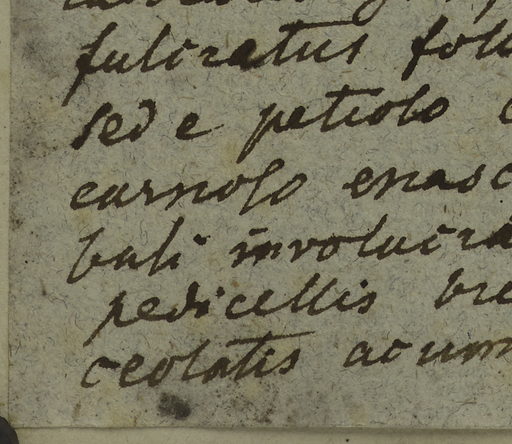 fulcratus foli
sed e petiolo c
carnoso enasc
bali involucra
pedicellis bre
ceolatis acum